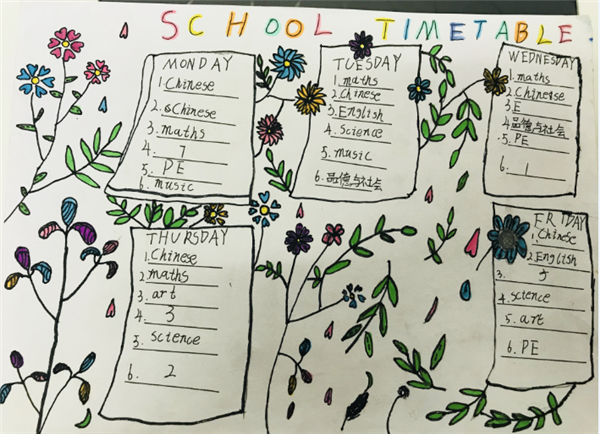 SCHOOL TIMETABLE
MONDAY
1.Chinese
2.6Chinese
3.maths
4. 7
5. PE
6. music
TUESDAY
1.maths
2.Chinese
3.English
4.Science
5.music
6.品德与社会
WEDNESDAY
1.maths
2.Chinese
3.E
4.品德与社会
5.PE
6. 1
THURSDAY
1.Chinese
2.maths
3.art
4. 3
5.science
6. 2
FRIDAY
1.Chinese
2.English
3. 5
4.science
5.art
6.PE